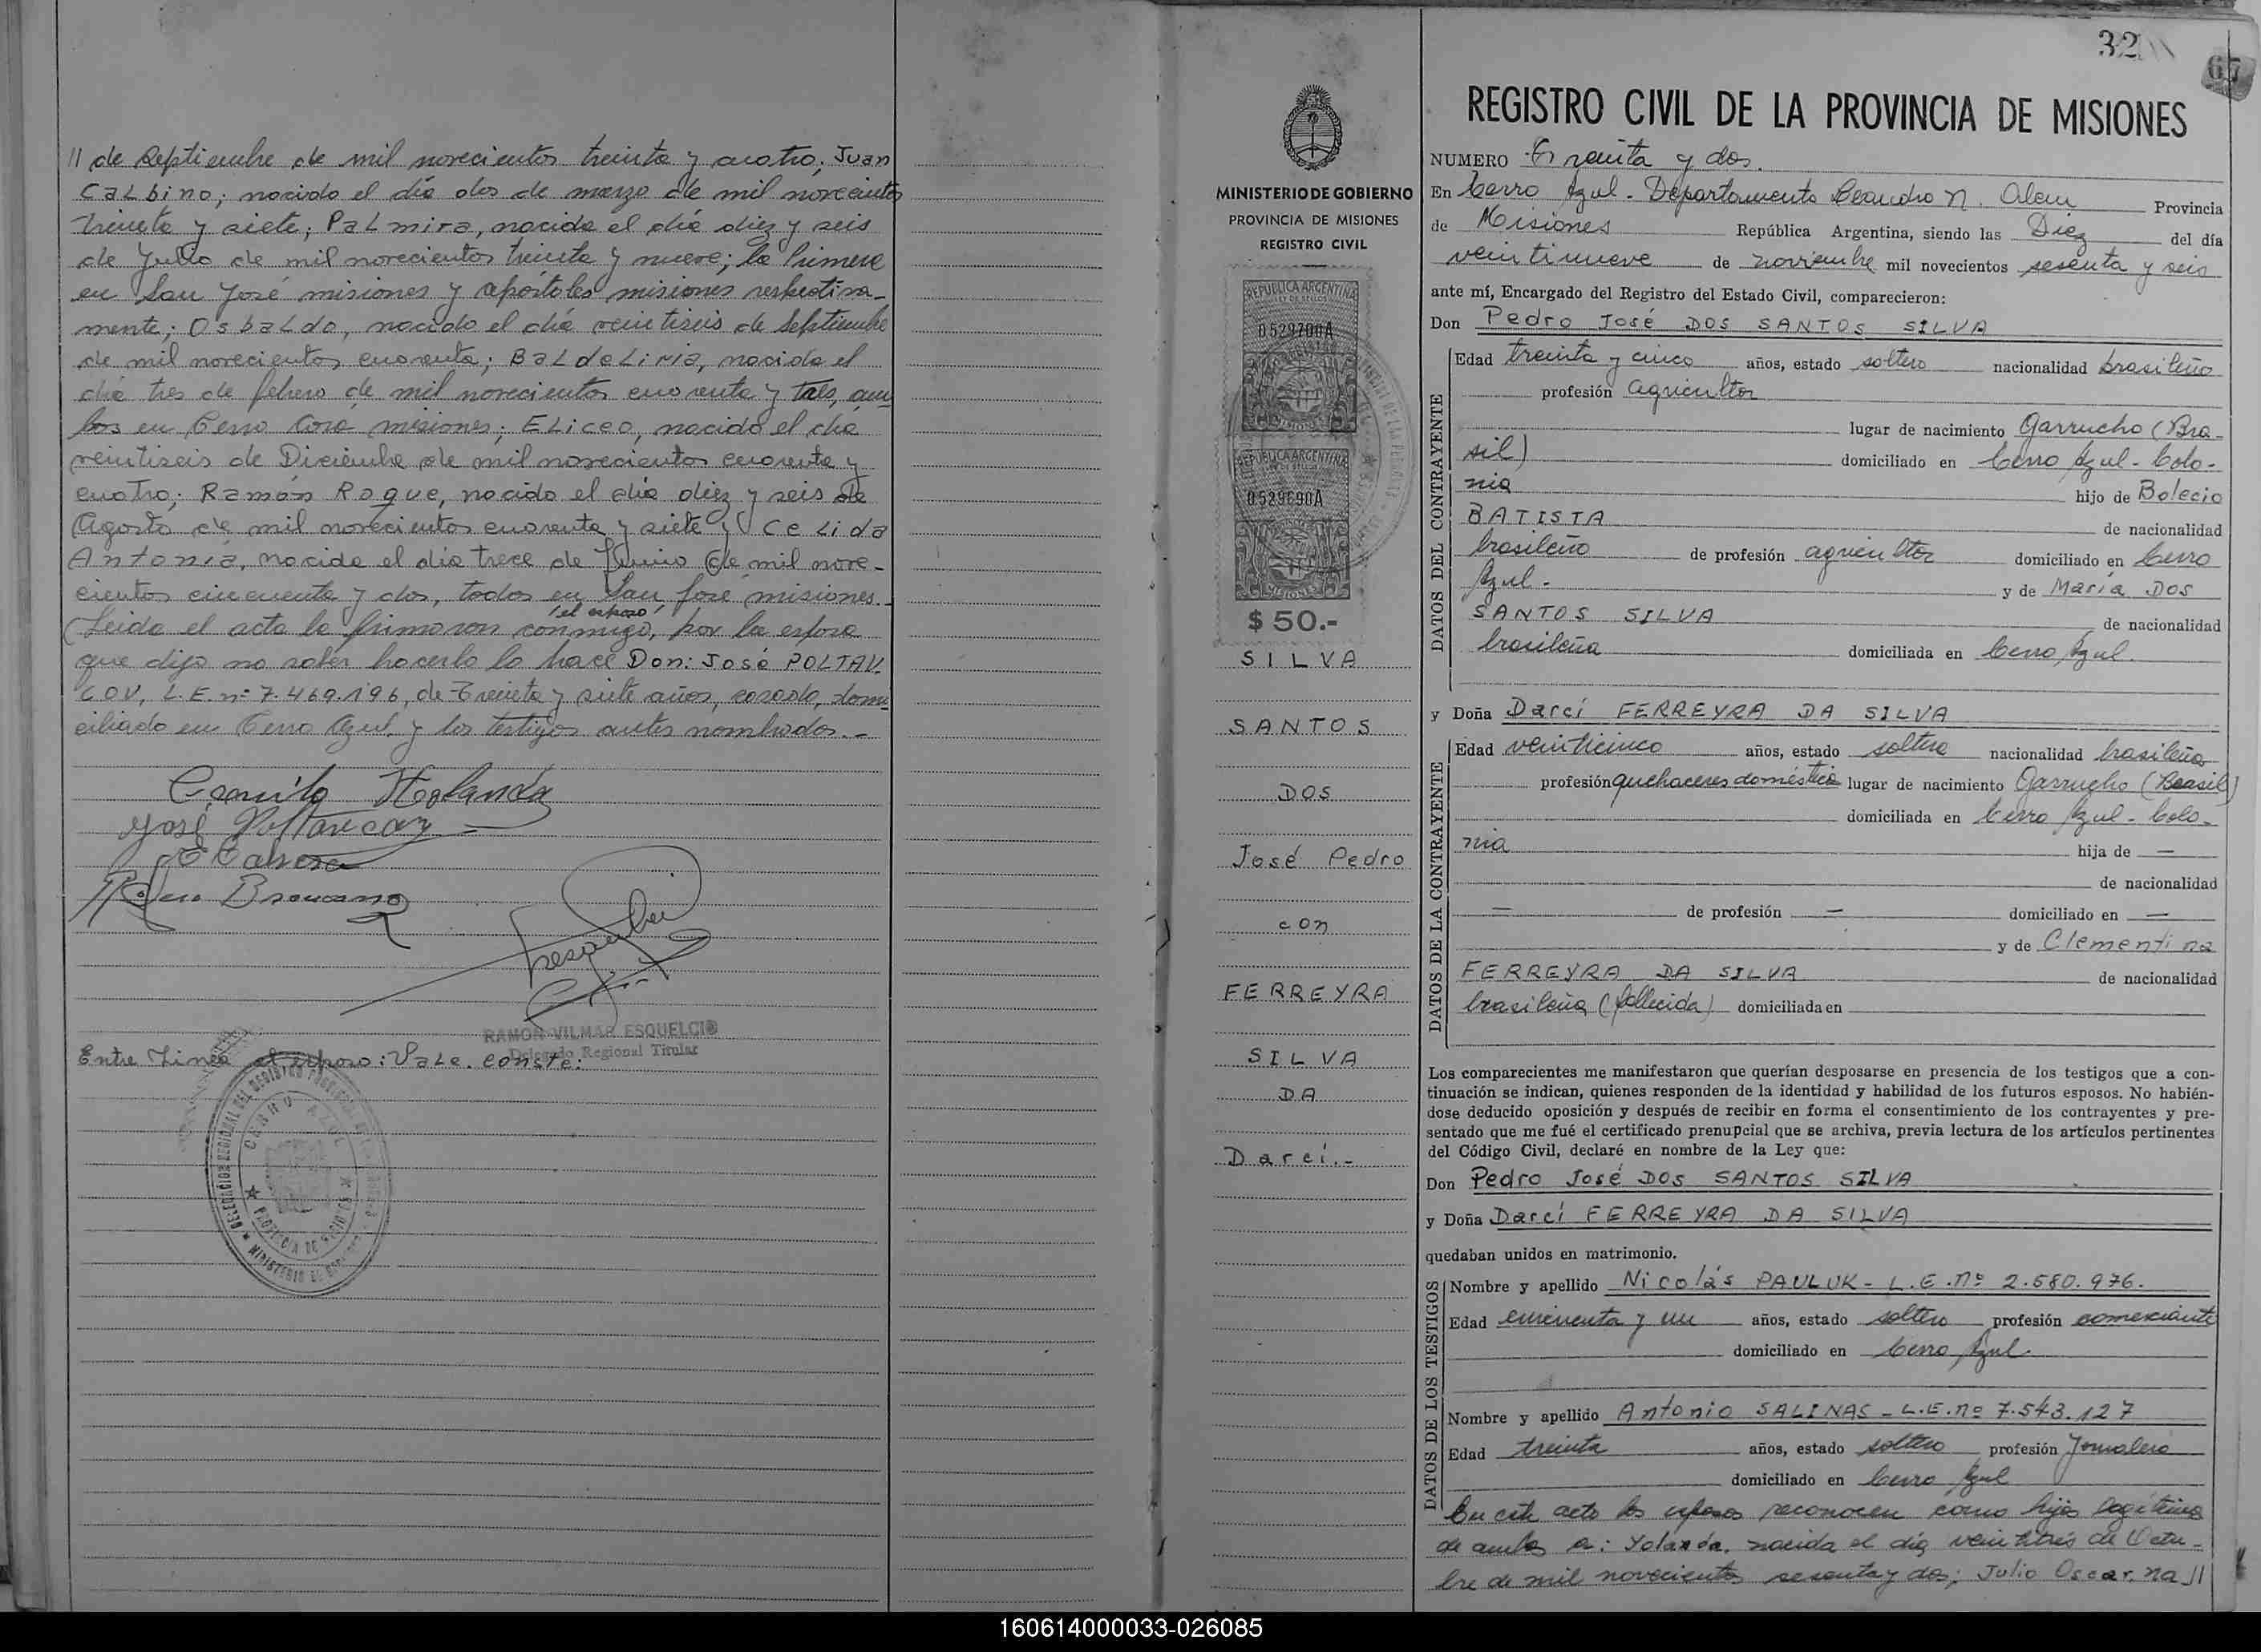 11 de Septiembre de mil novecientos treinta y cuatro; Juan
CaLbino; nacido el día dos de marzo de mil novecientos
treinta y siete; PaLmira, nacida el día diez y seis
de Julio de mil novecientos treinta y nueve; la Primera
en San José misiones y apóstoles misiones respectiva-
mente; OsbaLdo, nacido el día veintiseis de Septiembre
de mil novecientos cuarenta; BaLdeLiria, nacida el
día tres de febrero de mil novecientos cuarenta y tres, am
bos en Cerro Corá misiones; ELiceo, nacido el día
veintiseis de Diciembre de mil novecientos cuarenta y
cuatro; Ramón Roque, nacido el día diez y seis de
Agosto de mil novecientos cuarenta y siete y CeLida
Antonia, nacida el día trece de Junio de mil nove-
cientos cincuenta y dos, todos en San José misiones.-
/el esposo/
Leida el acta la firmaron conmigo, por la esposa
que dijo no saber hacerlo lo hace Don: José POLTAV
COV, L.E. nº 7.469.196, de Treinta y siete años, casado, domi
ciliado en Cerro Azul, y los testigos antes nombrados.-
Camilo Holanda
José Poltavcov
E Cabrera
RAMON VILMAR ESQUELCIO
Delegado Regional Titular
Entre Linea: el esposo: Vale. conste:
CERRO AZUL
PROVINCIA DE MISIONES
32
67
REGISTRO CIVIL DE LA PROVINCIA DE MISIONES
MINISTERIO DE GOBIERNO
PROVINCIA DE MISIONES
REGISTRO CIVIL
REPUBLICA ARGENTINA
LEY DE SELLOS
0529700A
MISIONES
REPUBLICA ARGENTINA
LEY DE SELLOS
0529690A
MISIONES
$ 50.-
SILVA
SANTOS
DOS
José Pedro
con
FERREYRA
SILVA
DA
Darcí.-
NUMERO Treinta y dos.
En Cerro Azul - Departamento Leandro N. Alem Provincia
de Misiones República Argentina, siendo las Diez del día
veintinueve de noviembre mil novecientos sesenta y seis
ante mí, Encargado del Registro del Estado Civil, comparecieron:
Don Pedro José DOS SANTOS SILVA
DATOS DEL CONTRAYENTE
Edad treinta y cinco años, estado soltero nacionalidad brasileño
profesión agricultor
lugar de nacimiento Garrucho (Bra-
sil) domiciliado en Cerro Azul - Colo-
nia hijo de Bolecio
BATISTA de nacionalidad
brasileño de profesión agricultor domiciliado en Cerro
Azul. y de María DOS
SANTOS SILVA de nacionalidad
brasileña domiciliada en Cerro Azul.
y Doña Darcí FERREYRA DA SILVA
DATOS DE LA CONTRAYENTE
Edad veinticinco años, estado soltera nacionalidad brasileña
profesión quehaceres doméstico lugar de nacimiento Garrucho (Brasil)
domiciliada en Cerro Azul - Colo-
nia hija de —
de nacionalidad
— de profesión — domiciliado en —
y de Clementina
FERREYRA DA SILVA de nacionalidad
brasileña (fallecida) domiciliada en
Los comparecientes me manifestaron que querían desposarse en presencia de los testigos que a con-
tinuación se indican, quienes responden de la identidad y habilidad de los futuros esposos. No habién-
dose deducido oposición y después de recibir en forma el consentimiento de los contrayentes y pre-
sentado que me fué el certificado prenupcial que se archiva, previa lectura de los artículos pertinentes
del Código Civil, declaré en nombre de la Ley que:
Don Pedro José DOS SANTOS SILVA
y Doña Darcí FERREYRA DA SILVA
quedaban unidos en matrimonio.
DATOS DE LOS TESTIGOS
Nombre y apellido Nicolás PAULUK - L.E.nº 2.580.976.
Edad cincuenta y un años, estado soltero profesión comerciante
domiciliado en Cerro Azul.
Nombre y apellido Antonio SALINAS - L.E.nº 7.543.127
Edad treinta años, estado soltero profesión Jornalero
domiciliado en Cerro Azul
En este acto los esposos reconocen como hijos legítimos
de ambos a: Yolanda, nacida el día veintitrés de Octu-
bre de mil novecientos sesenta y dos; Julio Oscar, na 11
160614000033-026085